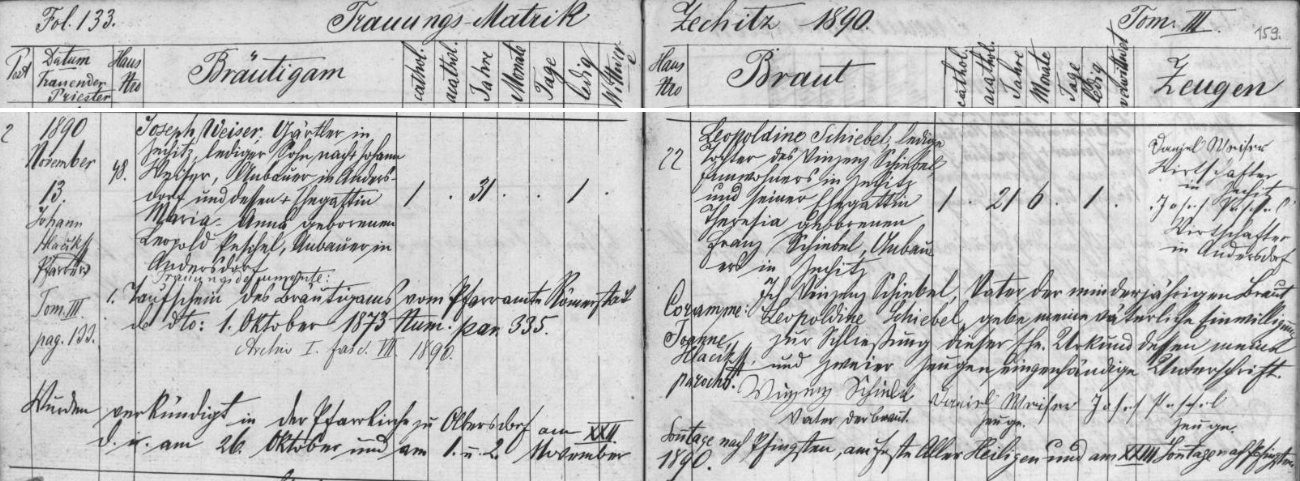 Fol. 133. Trauungs-Matrik Zechitz 1890. Tom. III 159.
Post
Datum
Trauender
Priester
Haus
Nro
Bräutigam
cathol.
acathol.
Jahre
Monate
Tage
ledig
Wittwer
Haus
Nro
Braut
cathol.
acathol.
Jahre
Monate
Tage
ledig
verwittwet
Zeugen
2
1890
November
13.
Johann
Pfarrer
Tom. III.
pag. 133.
48.
Joseph Weiser, Gärtler in
Zechitz, lediger Sohn nach Johann
Weiser, Anbauer in Anders-
dorf und dessen + Ehegattin
Maria Anna geborenen
Leopold Peschel, Anbauer in
Andersdorf
1 . 31 . . 1 .
22
Leopoldine Schiebel, ledige
Tochter des Vinzenz Schiebel,
Einwohners in Zechitz
und seiner Ehegattin
Theresia geborenen
Franz Schiebel, Anbau-
ers in Zechitz
1 . 21 6 . 1 .
Daniel Weiser
Wirtschafter
in Zechitz
Josef Peschel
Wirtschafter
in Andersdorf
Trauungsdokumente:
1. Taufschein des Bräutigams vom Pfarramte Römerstadt
de dto: 1. Oktober 1873 Num. 335.
Archiv I. fasc. VII. 1890.
Coram me:
Joanne
parocho.
Ich Vinzenz Schiebel, Vater der minderjährigen Braut
Leopoldine Schiebel, gebe meine väterliche Einwilligung
zur Schließung dieser Ehe. Urkund dessen meine
und zweier Zeugen eigenhändige Unterschrift.
Vinzenz Schiebl Daniel Weiser Josef Peschel
Vater der Braut. Zeuge. Zeuge.
Wurden verkündigt in der Pfarrkirche zu Olbersdorf am XXII
d. i. am 26. Oktober und am 1. u. 2. November
Sontage nach Pfingsten, am Feste Aller Heiligen und am XXIII Sontage nach Pfingsten
1890.